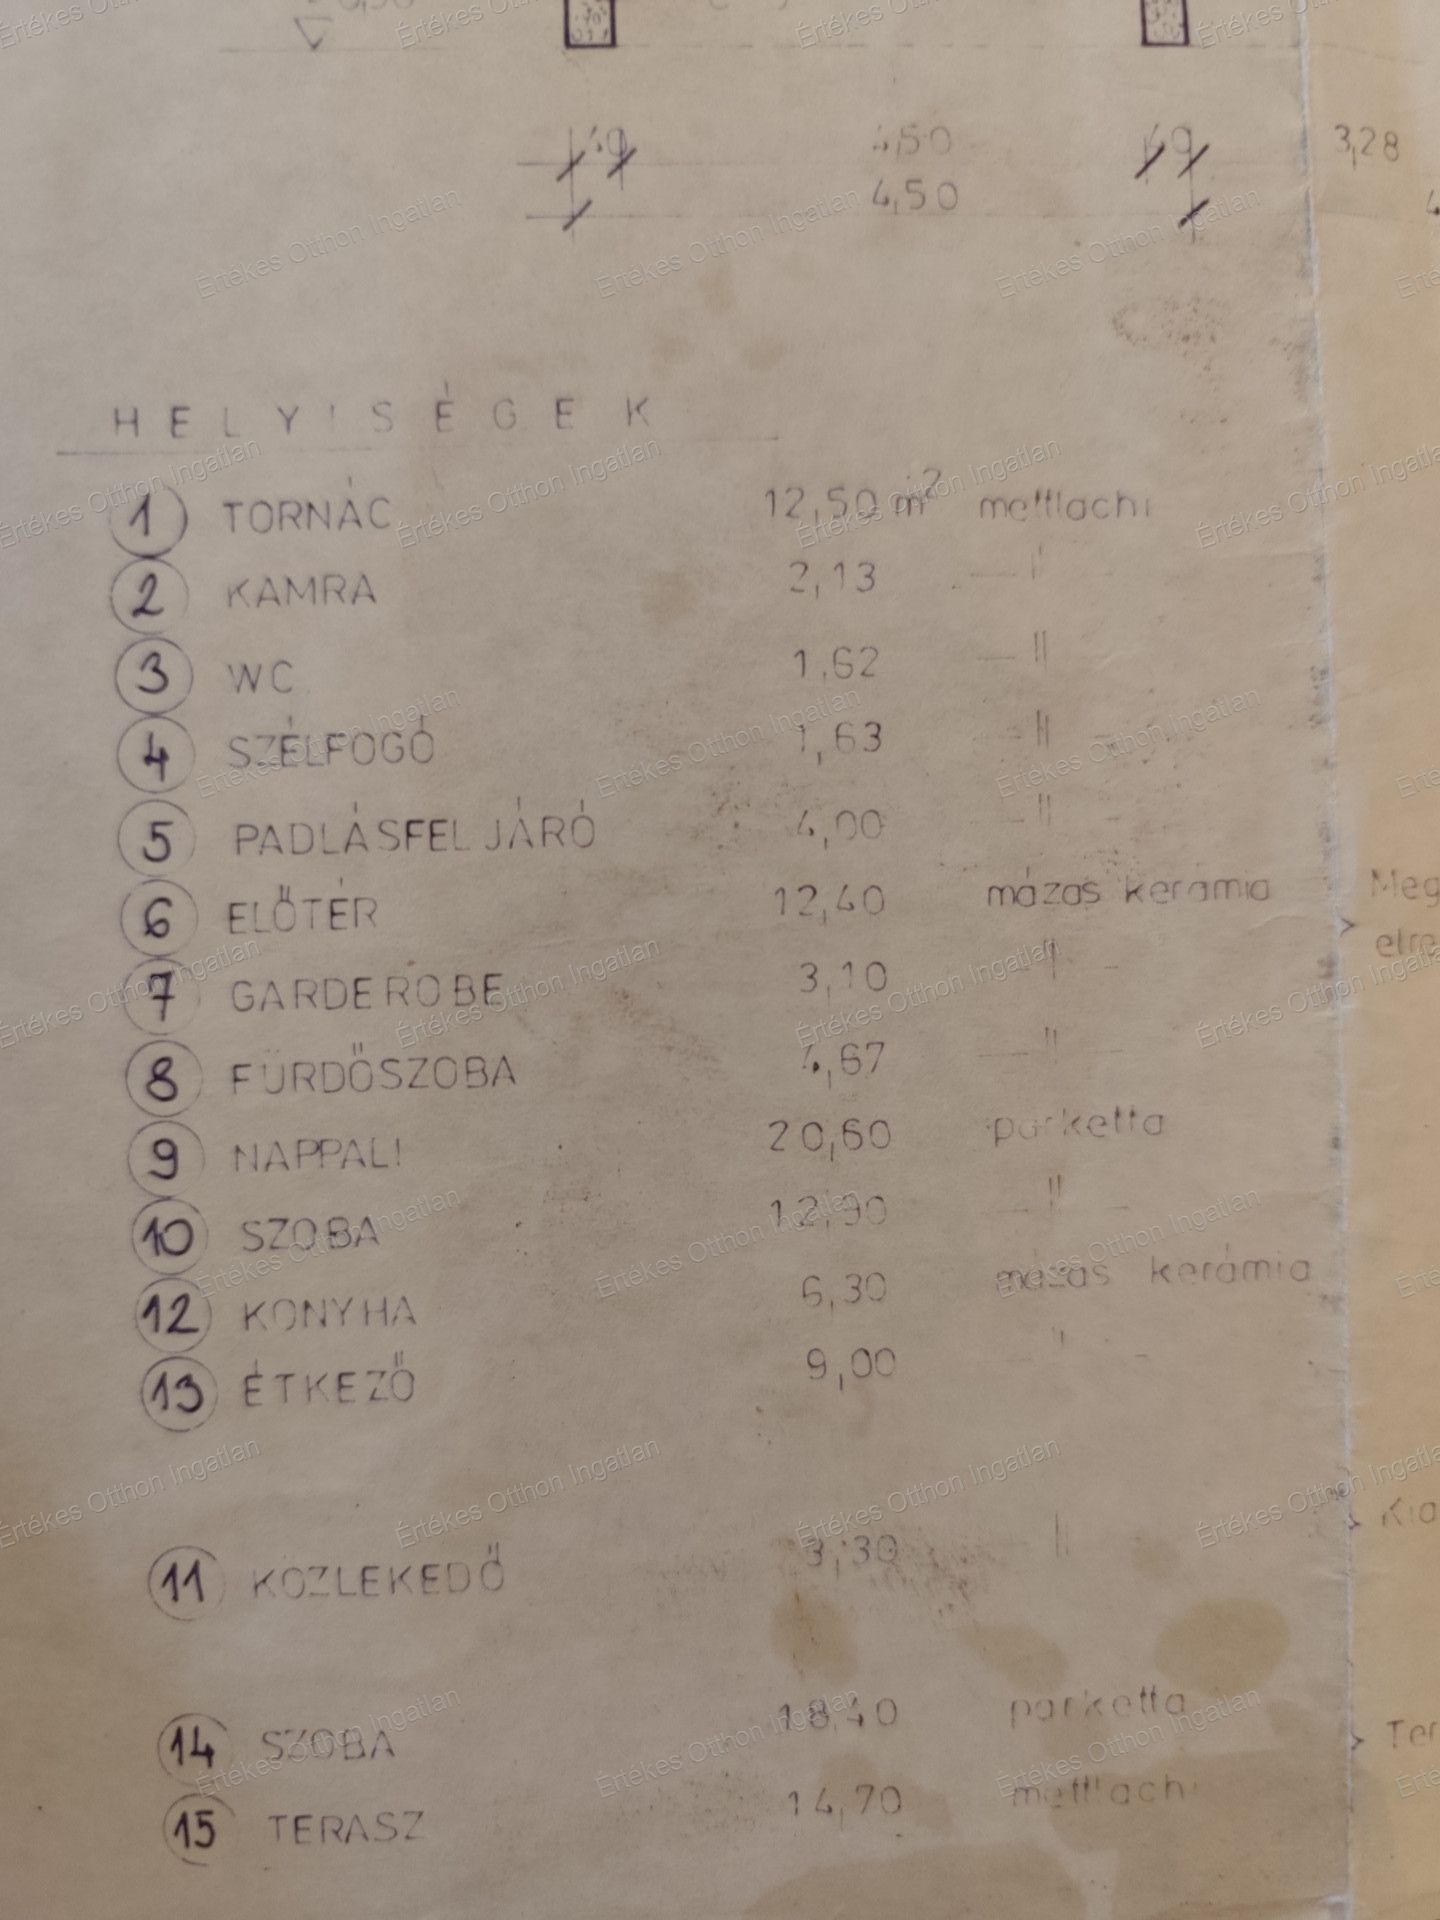 40 4,50 40 3,28
4,50
HELYISÉGEK
1 TORNÁC 12,50 m² mettlachi
2 KAMRA 2,13 —"—
3 WC 1,62 —"
4 SZÉLFOGÓ 1,63 —"—
5 PADLÁSFELJÁRÓ 4,00 —"
6 ELŐTÉR 12,40 mázas kerámia
7 GARDEROBE 3,10 —"—
8 FÜRDŐSZOBA 4,67 —"—
9 NAPPALI 20,60 parketta
10 SZOBA 12,90 —"—
12 KONYHA 6,30 mázas kerámia
13 ÉTKEZŐ 9,00 —"—
11 KÖZLEKEDŐ 3,30 —"
14 SZOBA 18,40 parketta
15 TERASZ 14,70 mettlachi
Meg
elre
Kia
Ter
Értékes Otthon Ingatlan